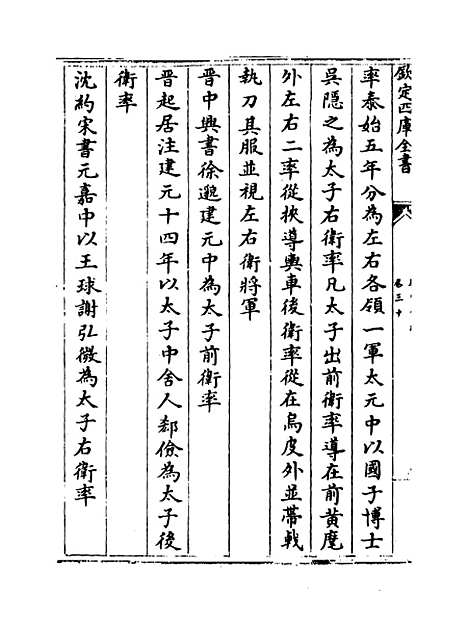 欽定四庫全書
卷三十
率泰始五年分為左右各領一軍太元中以國子博士
吳隱之為太子右衛率凡太子出前衛率導在前黃麾
外左右二率從挾導輿車後衛率從在烏皮外並帶戟
執刀其服並視左右衛將軍
晉中興書徐邈建元中為太子前衛率
晉起居注建元十四年以太子中舍人郗儉為太子後
衛率
沈約宋書元嘉中以王球謝弘微為太子右衛率